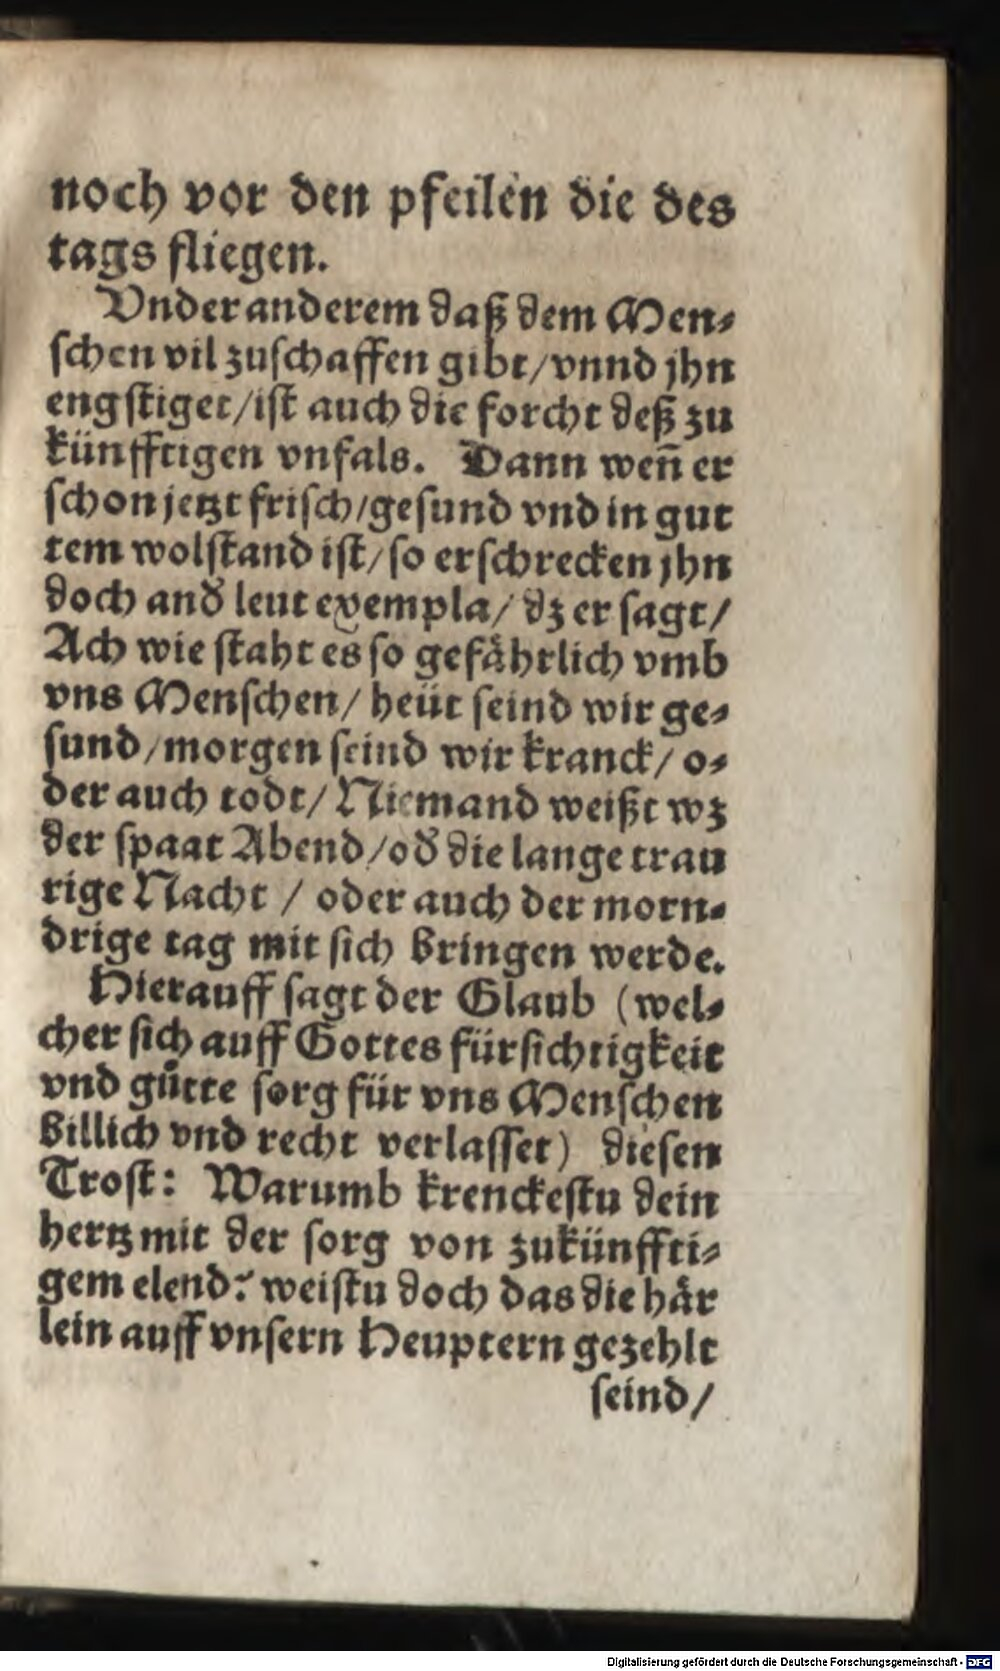 noch vor den pfeilen die des
tags fliegen.
Vnder anderem daß dem Men⸗
ſchen vil zuſchaffen gibt/vnnd jhn
engſtiget/iſt auch die forcht deß zu
künfftigen vnfals. Dann weñ er
ſchon jetzt friſch/geſund vnd in gut
tem wolſtand iſt/ſo erſchrecken jhn
doch and̕ leut exempla/ dz er ſagt/
Ach wie ſtaht es ſo gefährlich vmb
vns Menſchen/ heüt ſeind wir ge⸗
ſund/morgen ſeind wir kranck/ o⸗
der auch todt/ Niemand weißt wz
der ſpaat Abend/od̕ die lange trau
rige Nacht / oder auch der morn⸗
drige tag mit ſich bringen werde.
Hierauff ſagt der Glaub (wel⸗
cher ſich auff Gottes fürſichtigkeit
vnd guͤtte ſorg für vns Menſchen
billich vnd recht verlaſſet) dieſen
Troſt: Warumb krenckeſtu dein
hertz mit der ſorg von zukünffti⸗
gem elend? weiſtu doch das die här
lein auff vnſern Heuptern gezehlt
ſeind/
Digitalisierung gefördert durch die Deutsche Forschungsgemeinschaft - DFG